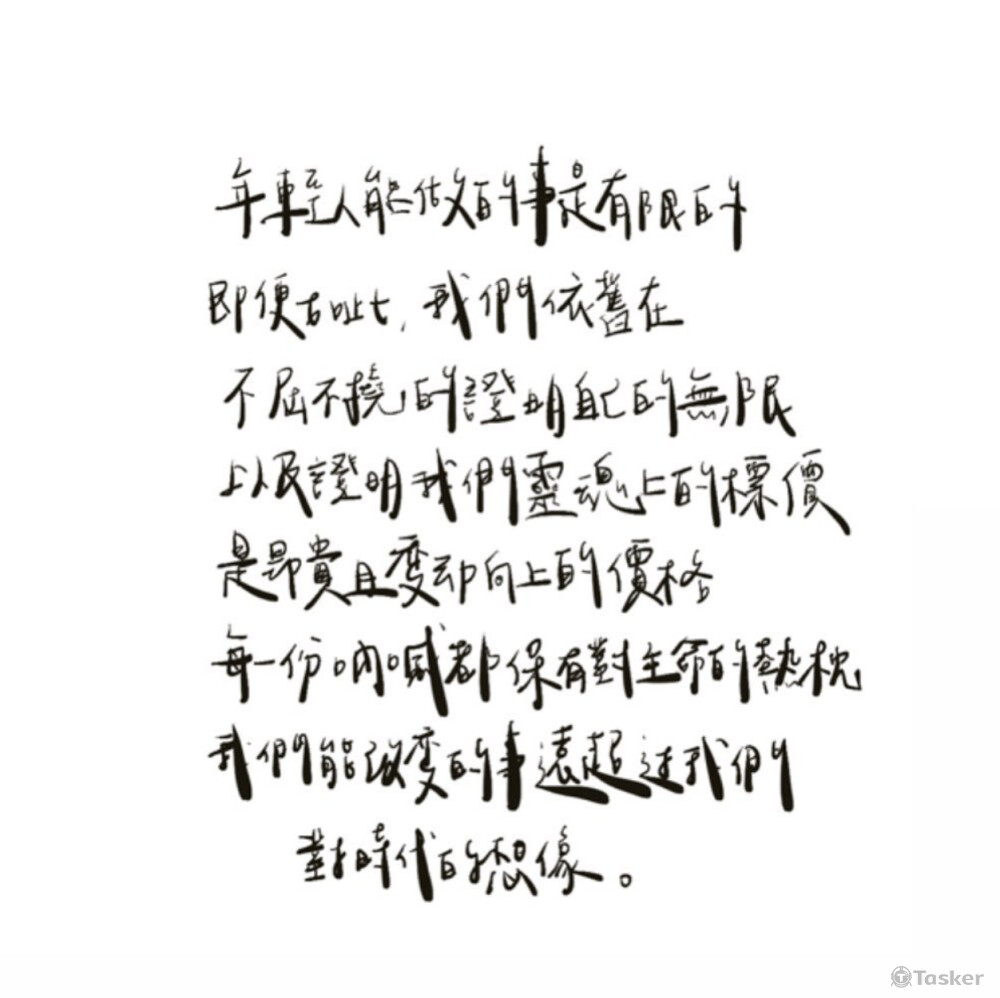 年輕人能做的事是有限的
即便如此，我們依舊在
不屈不撓的證明自己的無限
以及證明我們靈魂上的標價
是昂貴且變動向上的價格
每一份吶喊都保有對生命的熱忱
我們能改變的事遠超過我們
對時代的想像。
Tasker